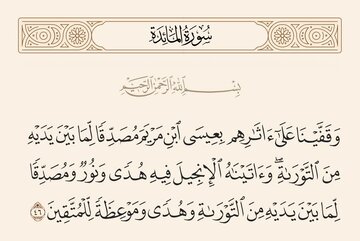 سُورَةُ المَائِدَةِ
بِسْمِ اللَّهِ الرَّحْمَٰنِ الرَّحِيمِ
وَقَفَّيْنَا عَلَىٰٓ ءَاثَٰرِهِم بِعِيسَى ٱبْنِ مَرْيَمَ مُصَدِّقًا لِّمَا بَيْنَ يَدَيْهِ
مِنَ ٱلتَّوْرَىٰةِ ۖ وَءَاتَيْنَٰهُ ٱلْإِنجِيلَ فِيهِ هُدًى وَنُورٌ وَمُصَدِّقًا
لِّمَا بَيْنَ يَدَيْهِ مِنَ ٱلتَّوْرَىٰةِ وَهُدًى وَمَوْعِظَةً لِّلْمُتَّقِينَ ٤٦